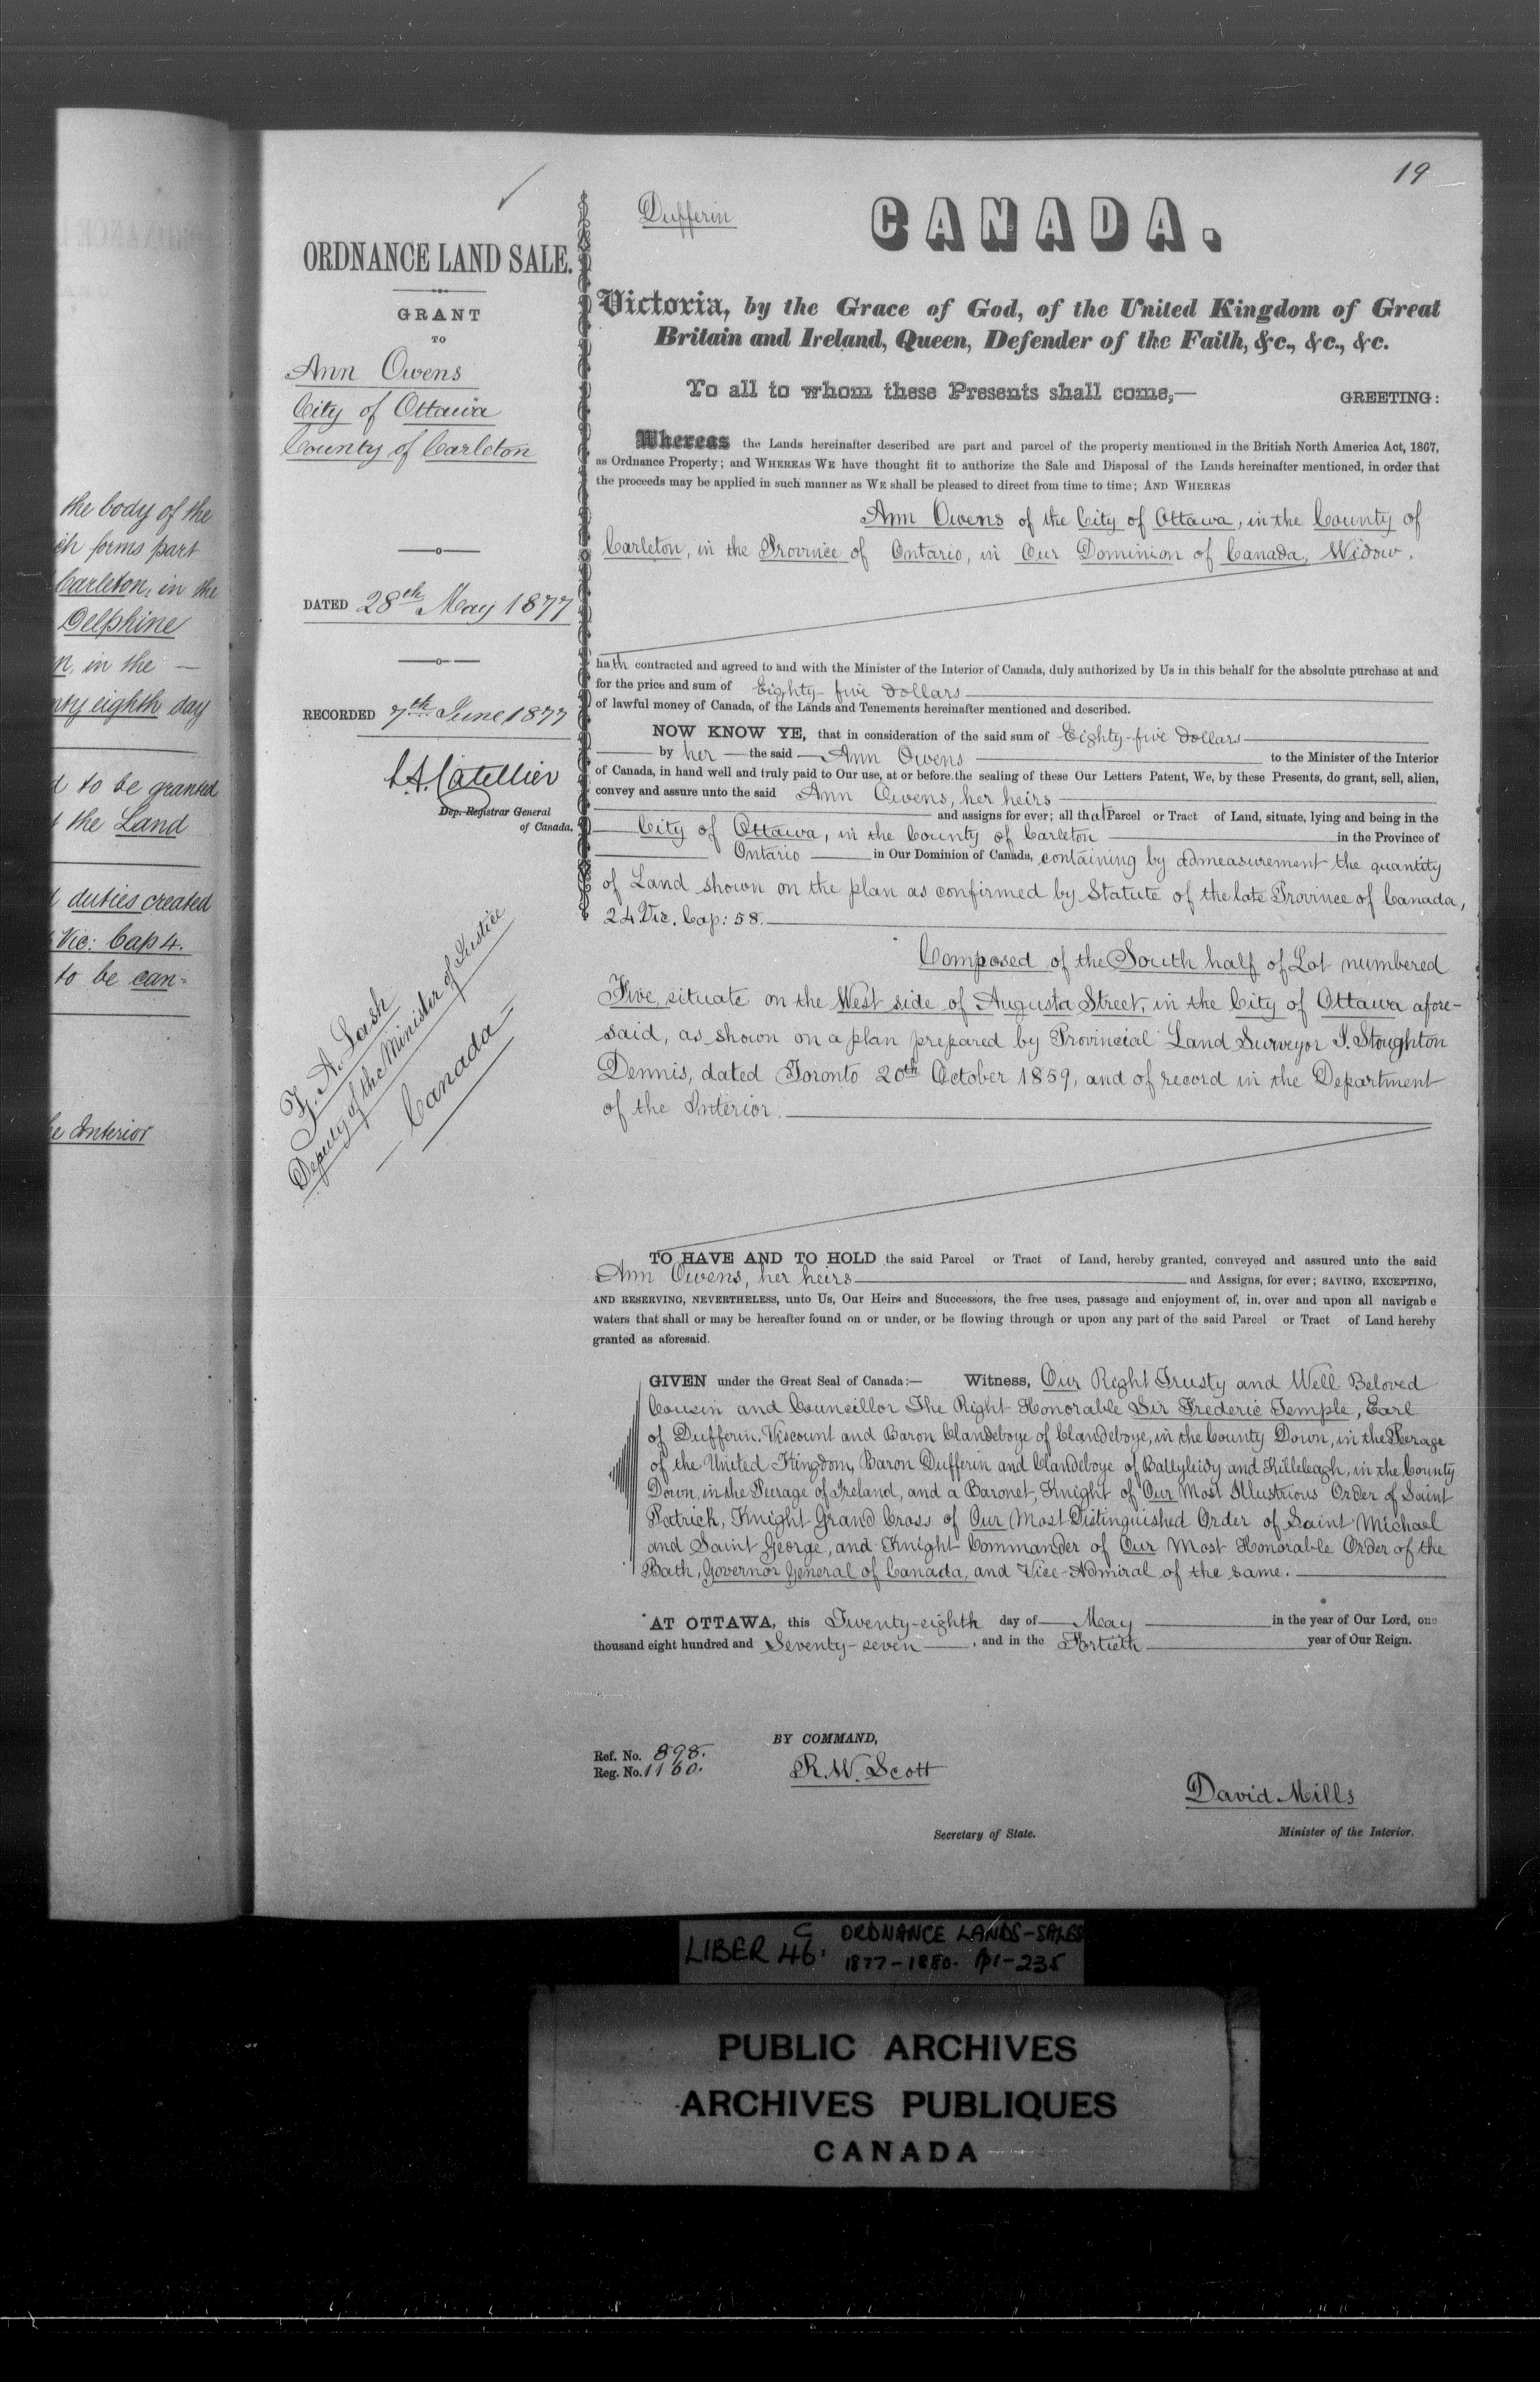 the body of the
ich forms part
Carleton, in the
Delphine
n, in the —
nty eighth day
d to be granted
the Land
duties created
Vic: Cap 4.
to be can=
he Interior
19
ORDNANCE LAND SALE.
GRANT
TO
Ann Owens
City of Ottawa
County of Carleton
DATED 28th May 1877
RECORDED 7th June 1877
L.A. Catellier
Dep. Registrar General
of Canada.
Z. A. Lash
Deputy of the Minister of Justice
— Canada —
Dufferin
CANADA.
Victoria, by the Grace of God, of the United Kingdom of Great
Britain and Ireland, Queen, Defender of the Faith, &c., &c., &c.
To all to whom these Presents shall come,— GREETING:
Whereas the Lands hereinafter described are part and parcel of the property mentioned in the British North America Act, 1867,
as Ordnance Property; and WHEREAS WE have thought fit to authorize the Sale and Disposal of the Lands hereinafter mentioned, in order that
the proceeds may be applied in such manner as WE shall be pleased to direct from time to time; AND WHEREAS
Ann Owens of the City of Ottawa, in the County of
Carleton, in the Province of Ontario, in Our Dominion of Canada, Widow.
hath contracted and agreed to and with the Minister of the Interior of Canada, duly authorized by Us in this behalf for the absolute purchase at and
for the price and sum of Eighty-five dollars
of lawful money of Canada, of the Lands and Tenements hereinafter mentioned and described.
NOW KNOW YE, that in consideration of the said sum of Eighty-five dollars
by her — the said — Ann Owens to the Minister of the Interior
of Canada, in hand well and truly paid to Our use, at or before the sealing of these Our Letters Patent, We, by these Presents, do grant, sell, alien,
convey and assure unto the said Ann Owens, her heirs
and assigns for ever; all that Parcel or Tract of Land, situate, lying and being in the
City of Ottawa, in the County of Carleton in the Province of
Ontario in Our Dominion of Canada, containing by admeasurement the quantity
of Land shown on the plan as confirmed by Statute of the late Province of Canada,
24 Vic. Cap: 58.
Composed of the South half of Lot numbered
Five, situate on the West side of Augusta Street, in the City of Ottawa afore-
said, as shown on a plan prepared by Provincial Land Surveyor J. Stoughton
Dennis, dated Toronto 20th October 1859, and of record in the Department
of the Interior.
TO HAVE AND TO HOLD the said Parcel or Tract of Land, hereby granted, conveyed and assured unto the said
Ann Owens, her heirs and Assigns, for ever; SAVING, EXCEPTING,
AND RESERVING, NEVERTHELESS, unto Us, Our Heirs and Successors, the free uses, passage and enjoyment of, in, over and upon all navigab e
waters that shall or may be hereafter found on or under, or be flowing through or upon any part of the said Parcel or Tract of Land hereby
granted as aforesaid.
GIVEN under the Great Seal of Canada:— Witness, Our Right Trusty and Well Beloved
Cousin and Councillor The Right Honorable Sir Frederic Temple, Earl
of Dufferin, Viscount and Baron Clandeboye of Clandeboye, in the County Down, in the Peerage
of the United Kingdom, Baron Dufferin and Clandeboye of Ballyleidy and Killeleagh, in the County
Down, in the Peerage of Ireland, and a Baronet, Knight of Our Most Illustrious Order of Saint
Patrick, Knight Grand Cross of Our Most Distinguished Order of Saint Michael
and Saint George, and Knight Commander of Our Most Honorable Order of the
Bath, Governor General of Canada, and Vice-Admiral of the same.
AT OTTAWA, this Twenty-eighth day of May in the year of Our Lord, one
thousand eight hundred and Seventy-seven, and in the Fortieth year of Our Reign.
BY COMMAND,
Ref. No. 898.
Reg. No. 1160.
R. W. Scott
Secretary of State.
David Mills
Minister of the Interior.
LIBER 46: C ORDNANCE LANDS-SALES
1877-1880. pp1-235
PUBLIC ARCHIVES
ARCHIVES PUBLIQUES
CANADA